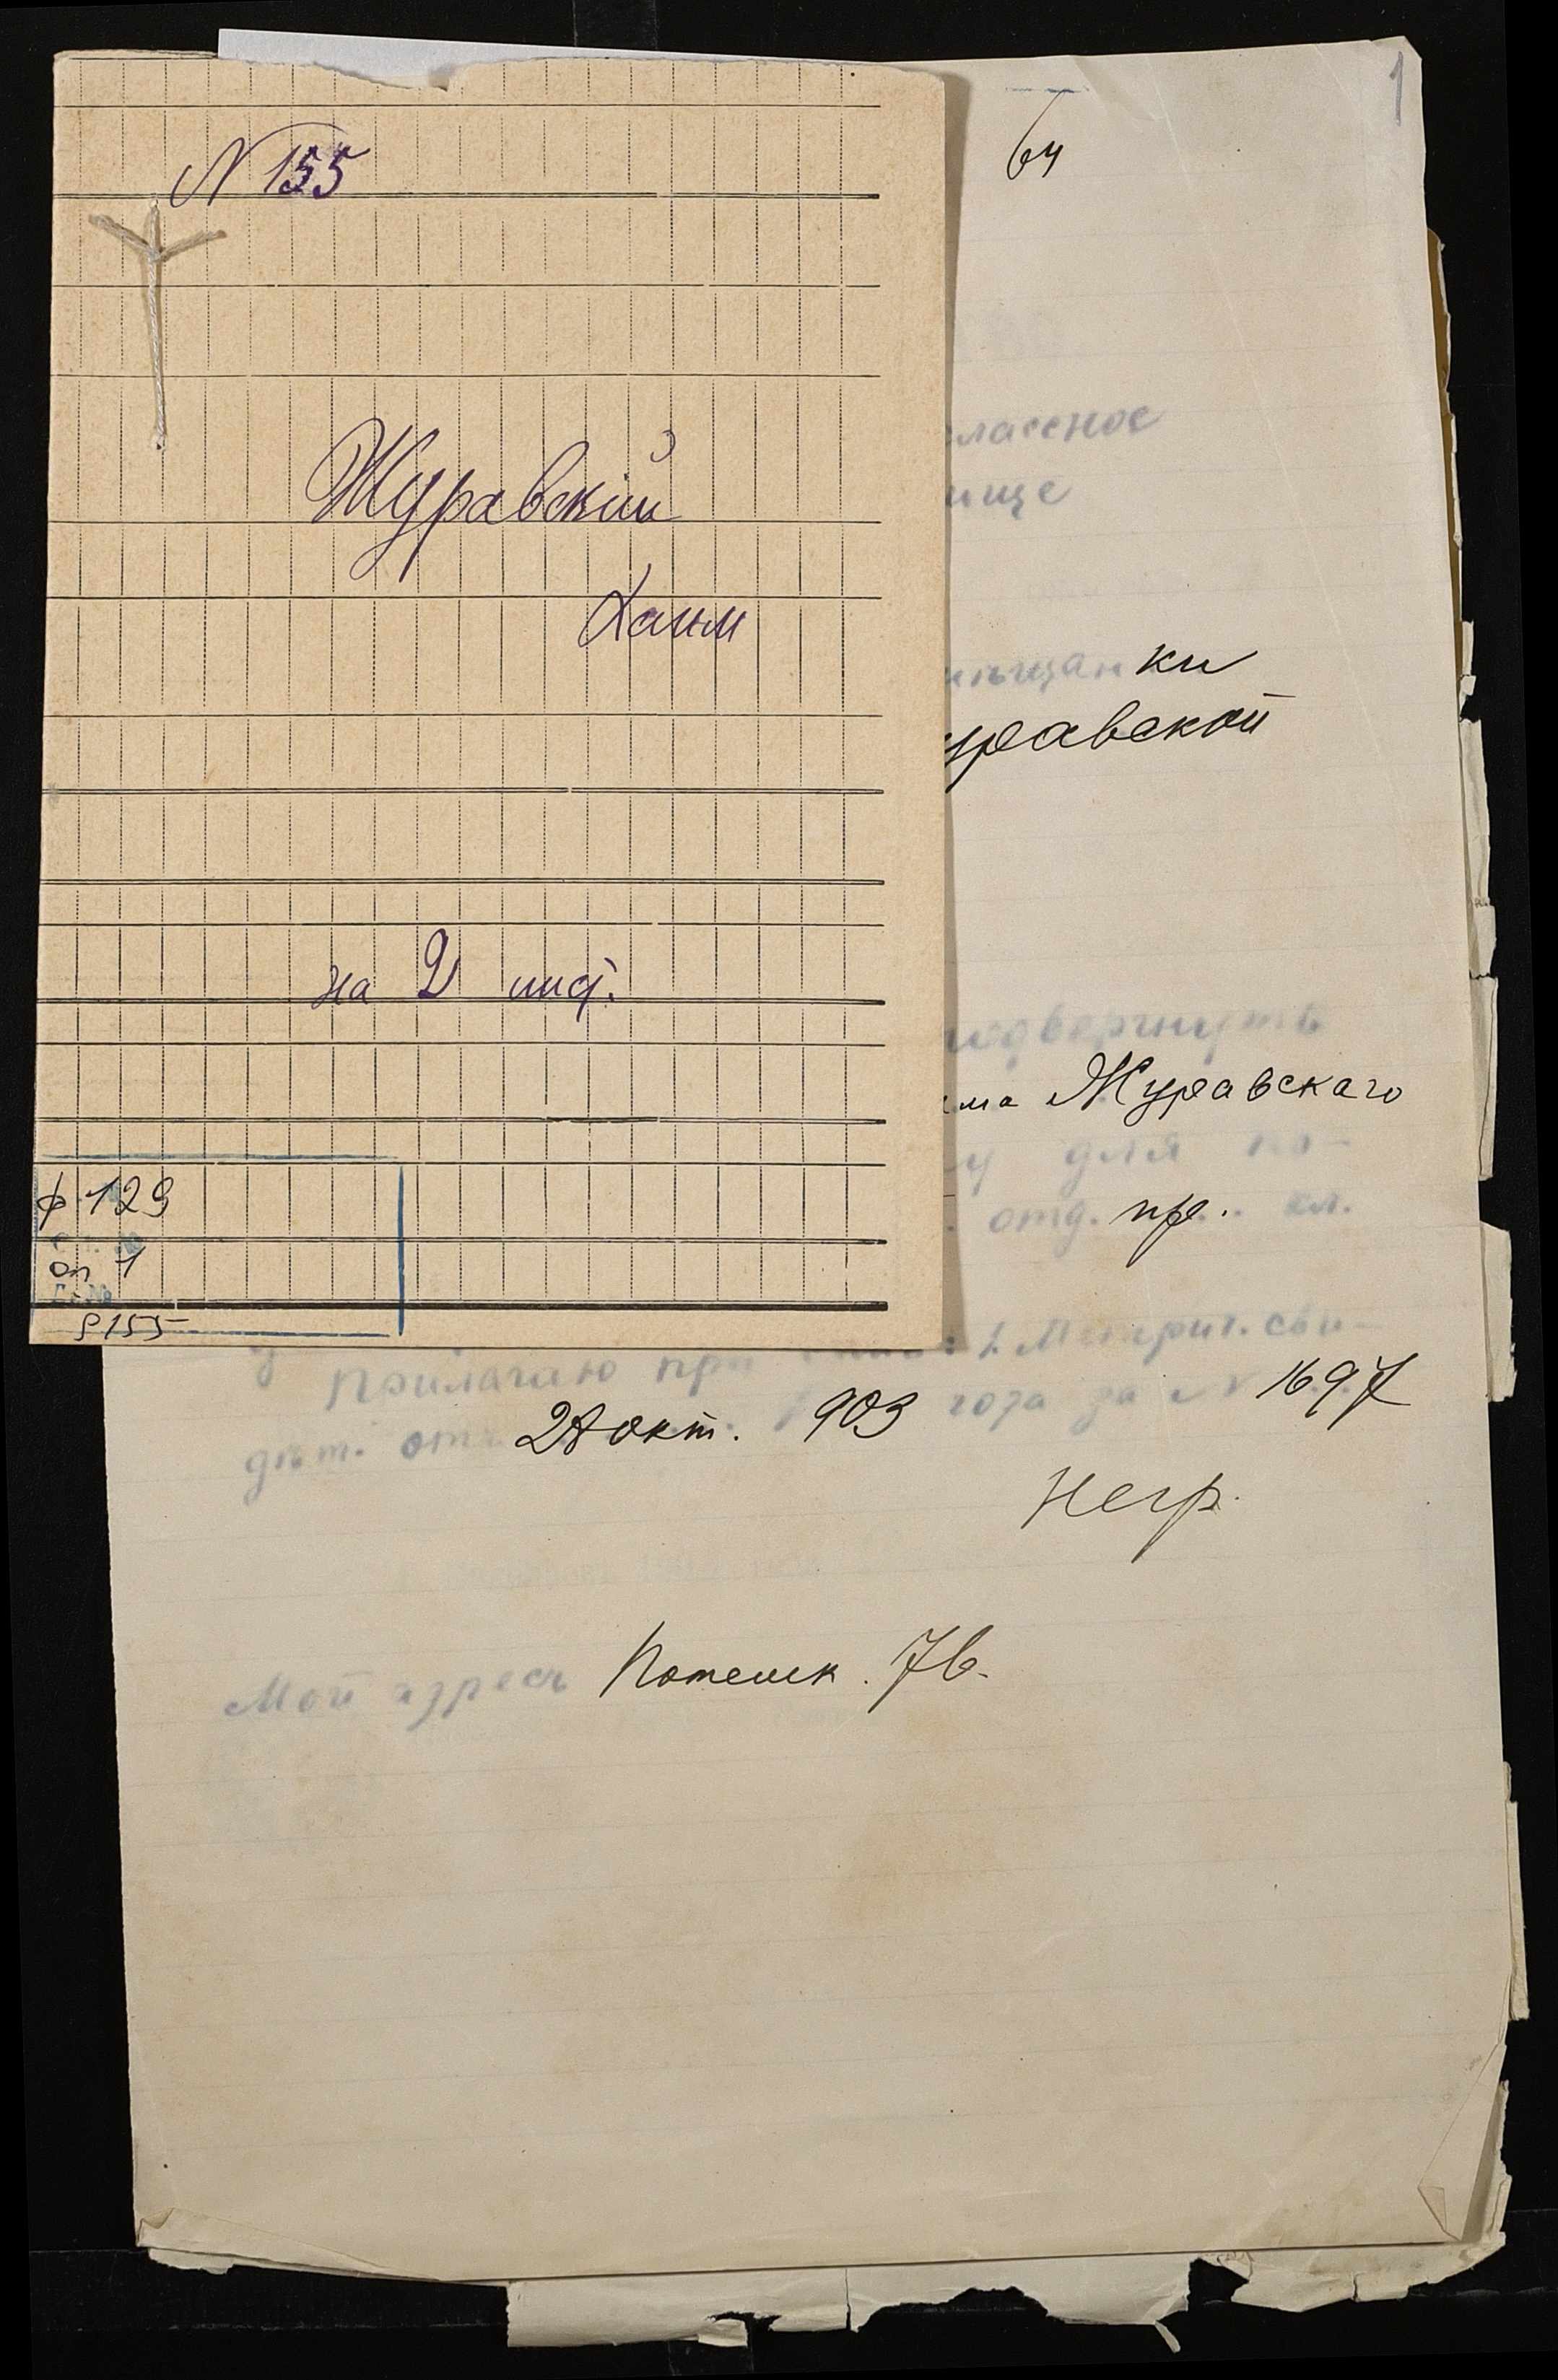 N 155
Журавскій
Хаим
на 2 лист.
ф. 129
оп 1
155
1
64
лассное
ище
щанки
уравской
подвергнуть
има Журавскаго
у для по-
отд. пр. кл.
Прилагаю при : 1. Метрич. сви-
дѣт. от 28 окт. 903 года за N 1697
Негр.
Мой адресъ Потемк. 76.